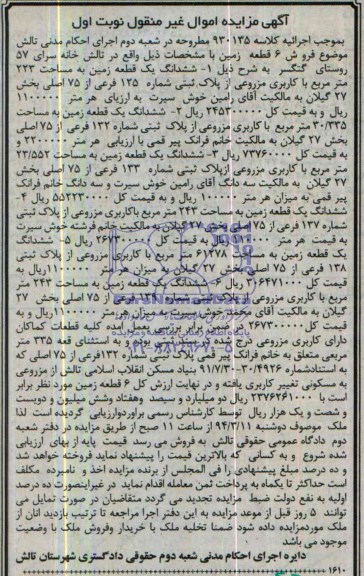 آگهی مزایده اموال غیر منقول نوبت اول
بموجب اجرائیه کلاسه ۹۳۰۱۳۵ مطروحه در شعبه دوم اجرای احکام مدنی تالش
موضوع فروش ۶ قطعه زمین با مشخصات ذیل واقع در تالش خانه سرای ۵۷
روستای گتگسر به شرح ذیل ۱- ششدانگ یک قطعه زمین به مساحت ۲۲۳
متر مربع با کاربری مزروعی از پلاک ثبتی شماره ۱۲۵ فرعی از ۷۵ اصلی بخش
۲۷ گیلان به مالکیت آقای رامین خوش سیرت به ارزیابی هر متر ۱۱۰۰۰۰۰
ریال و به قیمت کل ۲۴۵۳۰۰۰۰۰ ریال ۲- ششدانگ یک قطعه زمین به مساحت
۳۰/۳۳۵ متر مربع با کاربری مزروعی از پلاک ثبتی شماره ۱۳۲ فرعی از ۷۵ اصلی
بخش ۲۷ گیلان به مالکیت خانم فرانک پیر قمی با ارزیابی هر متر ۲۲۰۰۰۰۰ و
به قیمت کل ۷۳۷۶۰۰۰۰۰ ریال ۳- ششدانگ یک قطعه زمین به مساحت ۲۳/۵۵۲
متر مربع با کاربری مزروعی ازپلاک ثبتی شماره ۱۳۳ فرعی از ۷۵ اصلی بخش
۲۷ گیلان به مالکیت سه دانگ آقای رامین خوش سیرت و سه دانگ خانم فرانک
پیر قمی به میزان هر متر ۱۰۰۰۰۰۰ ریال و به قیمت کل ۵۵۲۲۳۰۰۰۰ ریال ۴-
ششدانگ یک قطعه زمین به مساحت ۲۴۳ متر مربع باکاربری مزروعی از پلاک ثبتی
شماره ۱۳۷ فرعی از ۷۵ اصلی بخش ۲۷ گیلان به مالکیت خانم فرشته خوش سیرت
به قیمت هر متر ریال به قیمت کل ریال ۵- ششدانگ
یک قطعه زمین به مساحت متر مربع با کاربری مزروعی از پلاک ثبتی
۱۳۸ فرعی از ۷۵ اصلی بخش ۲۷ گیلان به میزان هر متر ۱۱۰۰۰۰۰ ریال به
قیمت کل ریال ۶- ششدانگ یک قطعه زمین به مساحت ۲۴۳ متر
مربع با کاربری مزروعی از پلاک ثبتی شماره فرعی از ۷۵ اصلی بخش ۲۷
گیلان به مالکیت آقای خوش سیرت به میزان هر متر ۱۱۰۰۰۰۰ ریال و به
قیمت کل ۲۶۷۳۰۰۰۰۰ ریال برابر بررسی بعمل آمده کلیه قطعات کماکان
دارای کاربری مزروعی درج شده در سند ثبتی بوده و به استثنای قعه ۳۳۵ متر
مربعی متعلق به خانم فرانک پیر قمی پلاک ثبتی شماره ۱۳۲فرعی از ۷۵ اصلی که
به استنادشماره ۳۰/۴۹۲۶-۹۱/۷/۳ بنیاد مسکن انقلاب اسلامی تالش از مزروعی
به مسکونی تغییر کاربری یافته و در نهایت ارزش کل ۶ قطعه زمین مورد نظر برابر
با ۲۳۷۶۲۶۱۰۰۰ ریال دو میلیارد و سیصد وهفتاد وشش میلیون و دویست
و شصت و یک هزار ریال توسط کارشناس رسمی براوردوارزیابی گردیده است لذا
ملک موصوف دوشنبه ۹۴/۳/۱۱ از ساعت ۱۱ صبح از طریق مزایده در دفتر شعبه
دوم دادگاه عمومی حقوقی تالش به فروش می رسد قیمت پایه از بهای ارزیابی
شده شروع و به کسانی که بالاترین قیمت را پیشنهاد نماید فروخته خواهد شد
و ده درصد مبلغ پیشنهادی را فی المجلس از برنده مزایده اخذ و نامبرده مکلف
است حداکثر تا یکماه به پرداخت ثمن معامله اقدام نماید در غیراینصورت ده درصد
اولیه به نفع دولت ضبط مزایده تجدید می گردد متقاضیان در صورت تمایل می
توانند ۵ روز قبل از موعد مزایده به این دفتر اجرا مراجعه تا ترتیب بازدید انان از
ملک موردمزایده داده شود ضمنا تخلیه ملک با خریدار وفروش ملک با وضعیت
موجود می باشد
دایره اجرای احکام مدنی شعبه دوم حقوقی دادگستری شهرستان تالش
۱۶۱۰